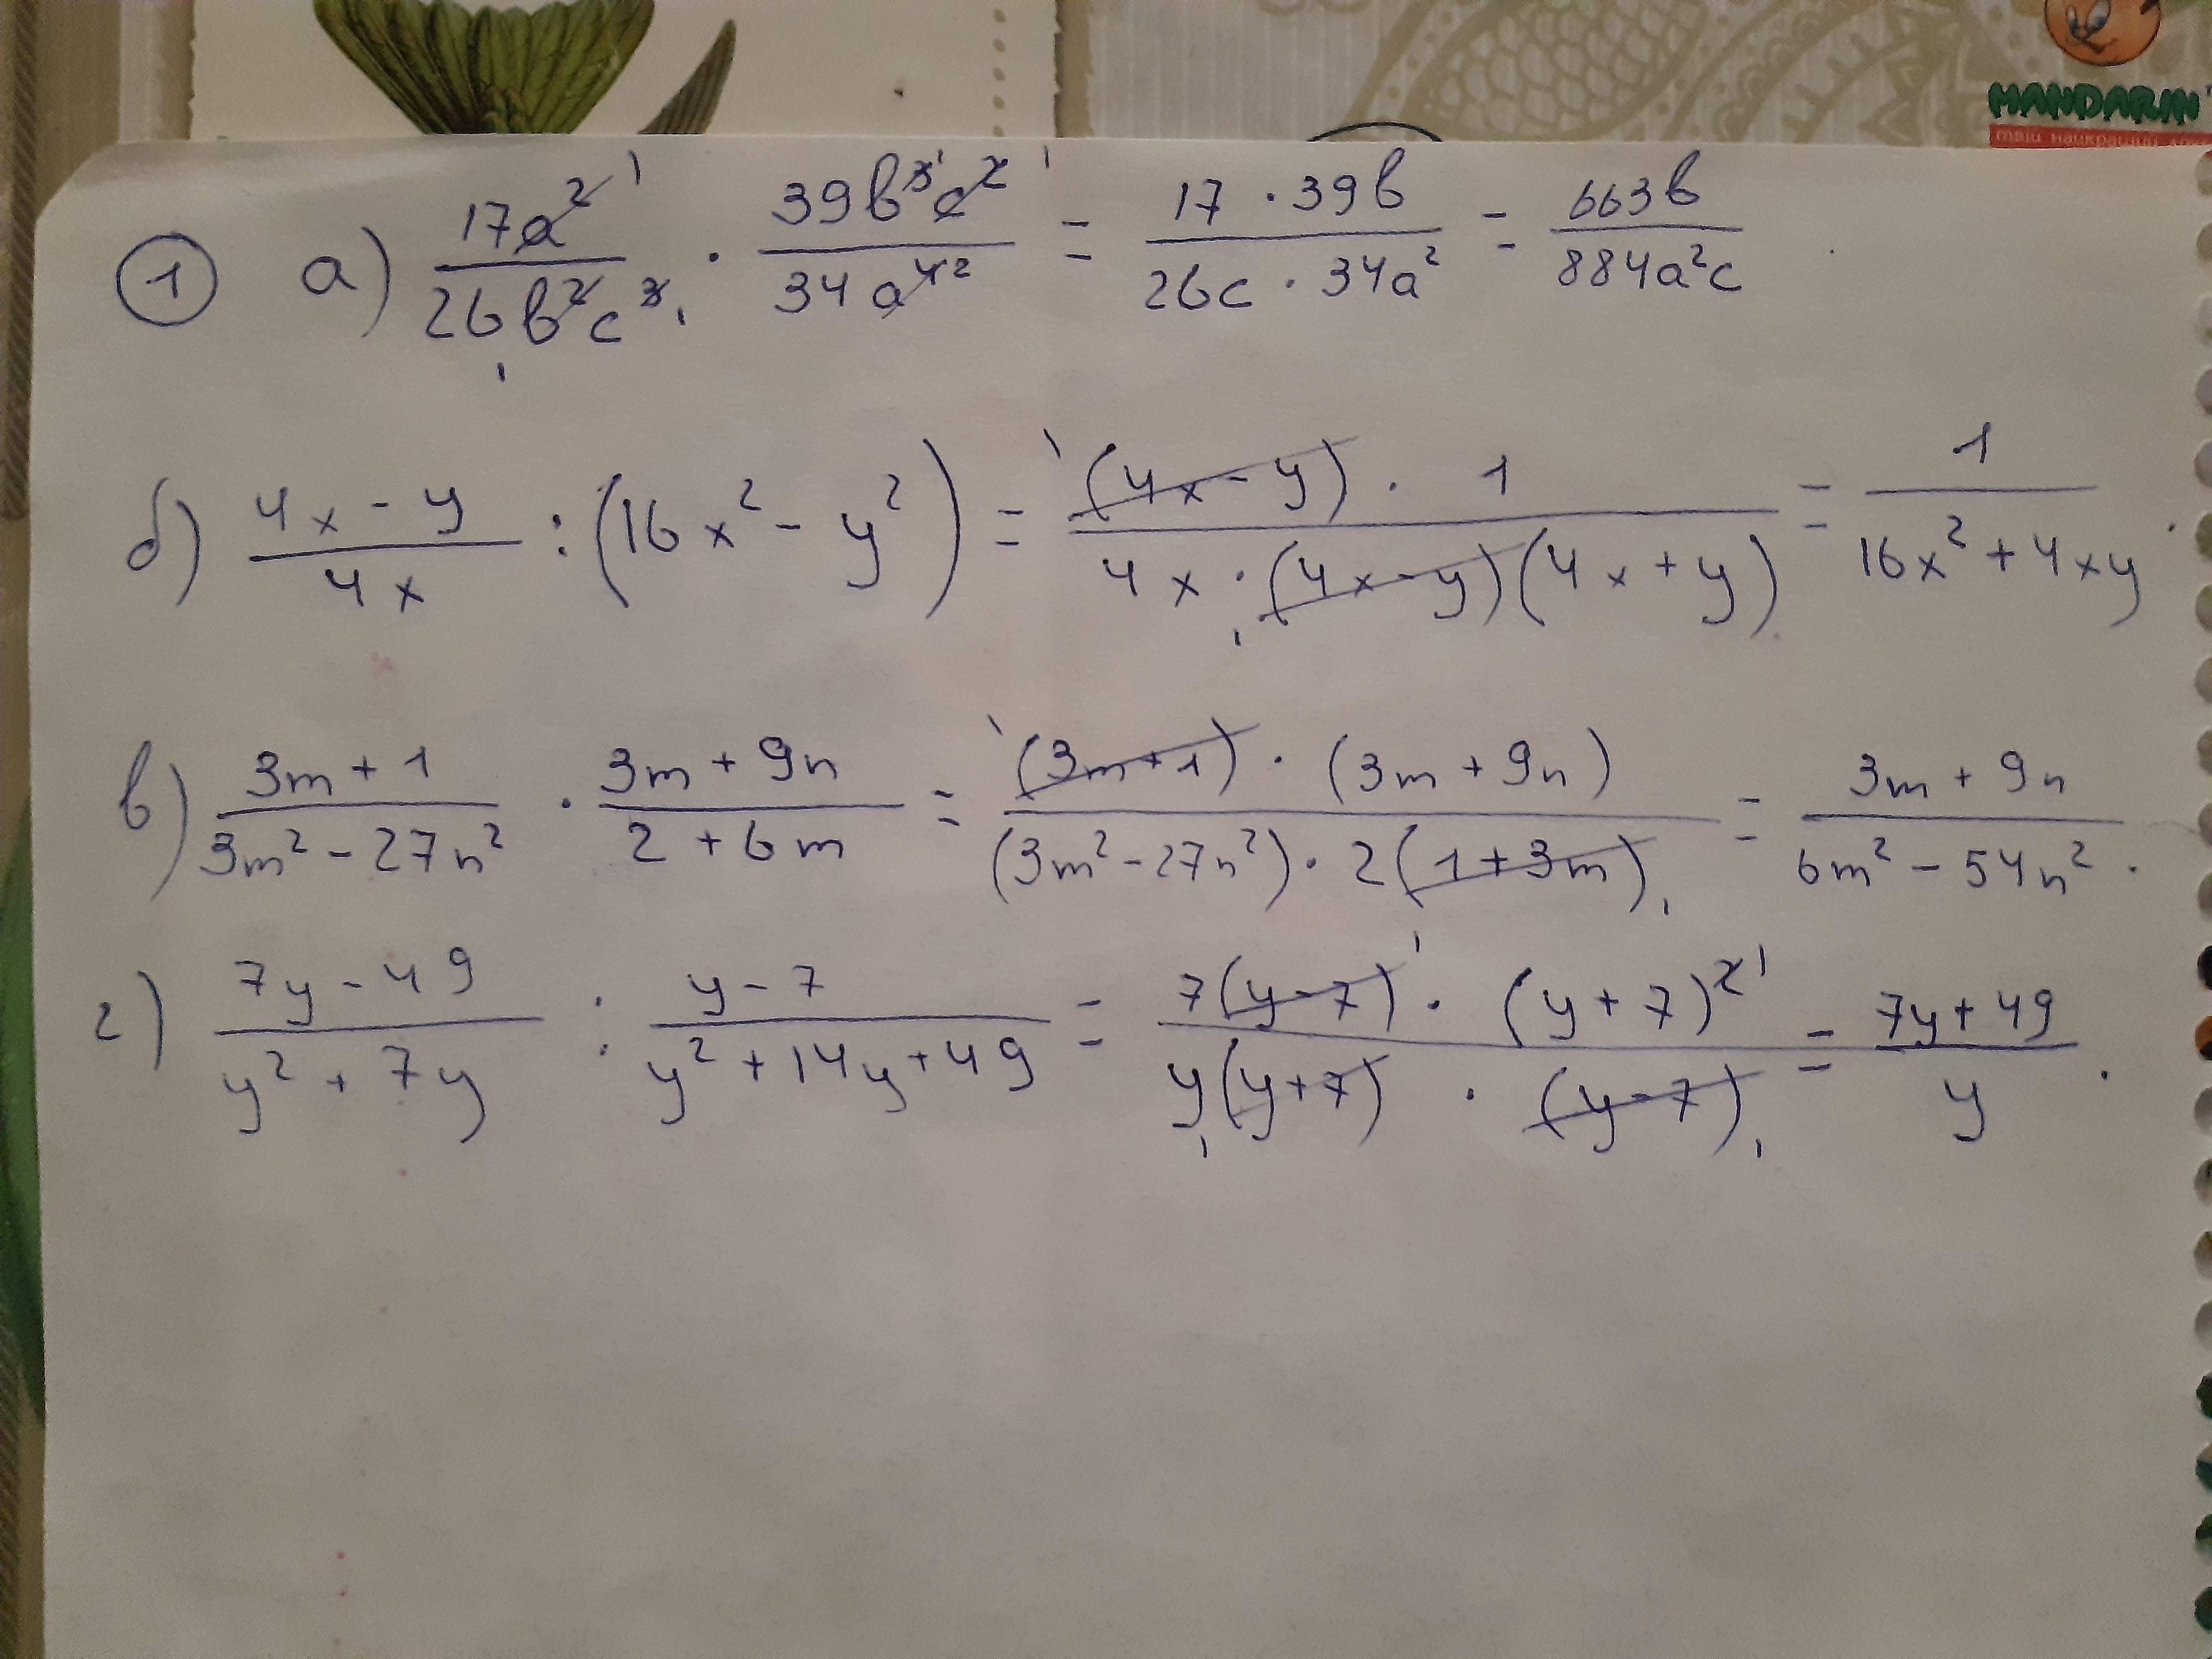 MANDARIN
твій найкращий
① а) 17a²/26b²c³ · 39b³c²/34a⁴ = 17 · 39b/26c · 34a² = 663b/884a²c
б) 4x - y/4x : (16x² - y²) = (4x - y) · 1/4x · (4x - y)(4x + y) = 1/16x² + 4xy.
в) 3m + 1/3m² - 27n² · 3m + 9n/2 + 6m = (3m + 1) · (3m + 9n)/(3m² - 27n²) · 2(1 + 3m) = 3m + 9n/6m² - 54n².
г) 7y - 49/y² + 7y : y - 7/y² + 14y + 49 = 7(y - 7) · (y + 7)²/y(y + 7) · (y - 7) = 7y + 49/y.